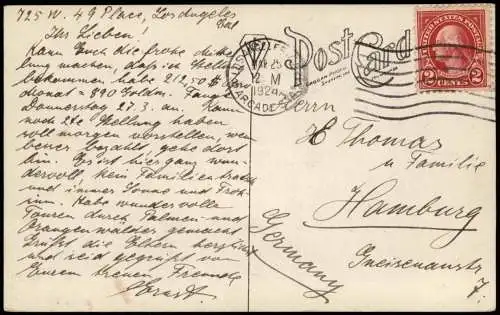 725 W. 49 Place, Los Angeles
Cal
Ihr Lieben!
Kann Euch die frohe Mittei-
lung machen, daß ich Stellung
bekommen habe 212,50 $ pro
Monat = 890 Goldm. Fange
Donnerstag 27.3. an. Kann
noch 2te Stellung haben
soll morgen vorstellen, wenn
besser bezahlt, gehe dort
hin. Es ist hier ganz wun-
dervoll, kein Familien
und immer Sonne und Froh-
sinn. Habe wundervolle
Touren durch Palmen- und
Orangenwälder gemacht
Grüßt die Eltern herzlichst
und seid gegrüßt von
Eurem treuen Freunde
Ernst.
Post Card
25
12 M
1924
ARCADE STA
2 CENTS 2
Herrn
H Thomas
u Familie
Hamburg
Gneisenaustr
7.
Germany